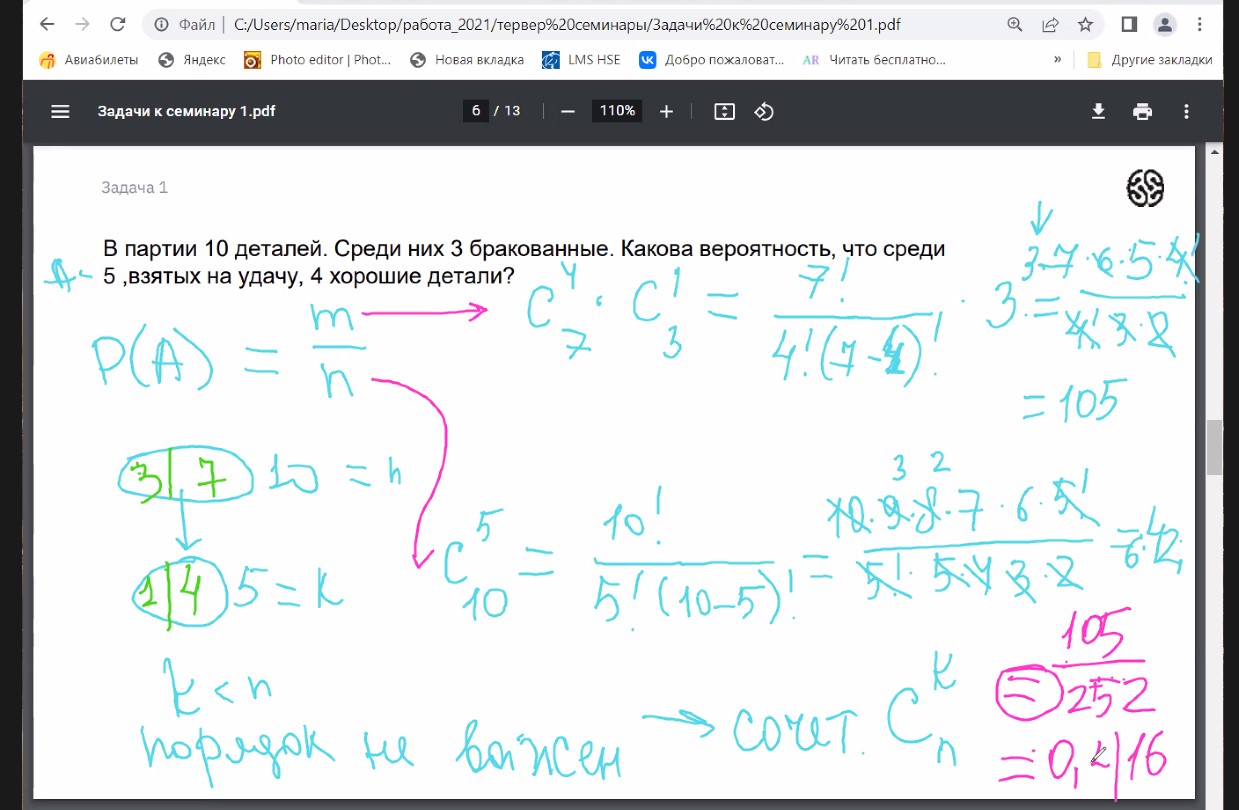 Файл | C:/Users/maria/Desktop/работа_2021/тервер%20семинары/Задачи%20к%20семинару%201.pdf
Авиабилеты Яндекс Photo editor | Phot... Новая вкладка LMS HSE Добро пожаловат... AR Читать бесплатно... » Другие закладки
Задачи к семинару 1.pdf 6 / 13 110%
Задача 1
В партии 10 деталей. Среди них 3 бракованные. Какова вероятность, что среди
5 ,взятых на удачу, 4 хорошие детали?
A -
P(A) = m/n
C_7^4 · C_3^1 = 7!/(4!(7-4)!) · 3 = (3·7·6·5·4!)/(4!·3·2)
= 105
3 | 7 10 = n
1 | 4 5 = k
C_10^5 = 10!/(5!(10-5)!) = (10·9·8·7·6·5!)/(5!·5·4·3·2) = 6·42
3 2
k < n
порядок не важен → сочет. C_n^k
= 105/252
= 0,4|16